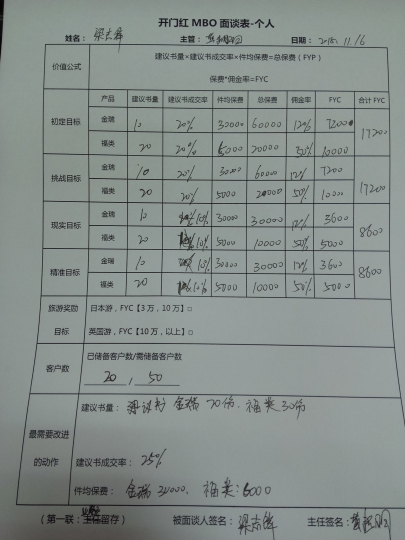 开门红 MBO 面谈表-个人
姓名: 梁志锋 主管: 日期: 2015.11/6
价值公式 建议书量×建议书成交率×件均保费=总保费(FYP)
保费*佣金率=FYC
产品 建议书量 建议书成交率 件均保费 总保费 佣金率 FYC 合计 FYC
初定目标 金瑞 10 20% 30000 60000 12% 7200 17200
福类 20 20% 5000 20000 50% 10000
挑战目标 金瑞 10 20% 30000 60000 12% 7200 17200
福类 20 20% 5000 20000 50% 10000
现实目标 金瑞 10 10% 30000 30000 12% 3600 8600
福类 20 10% 5000 10000 50% 5000
精准目标 金瑞 10 10% 30000 30000 12% 3600 8600
福类 20 10% 5000 10000 50% 5000
旅游奖励 日本游,FYC【3万,10万】○
目标 英国游,FYC【10万,以上】○
客户数 已储备客户数/需储备客户数
20 , 50
最需要改进的动作 建议书量: 建议书 金瑞 20份、福类30份
建议书成交率: 25%
件均保费: 金瑞 31000、福类: 6000
(第一联:主任留存) 被面谈人签名: 梁志锋 主任签名: